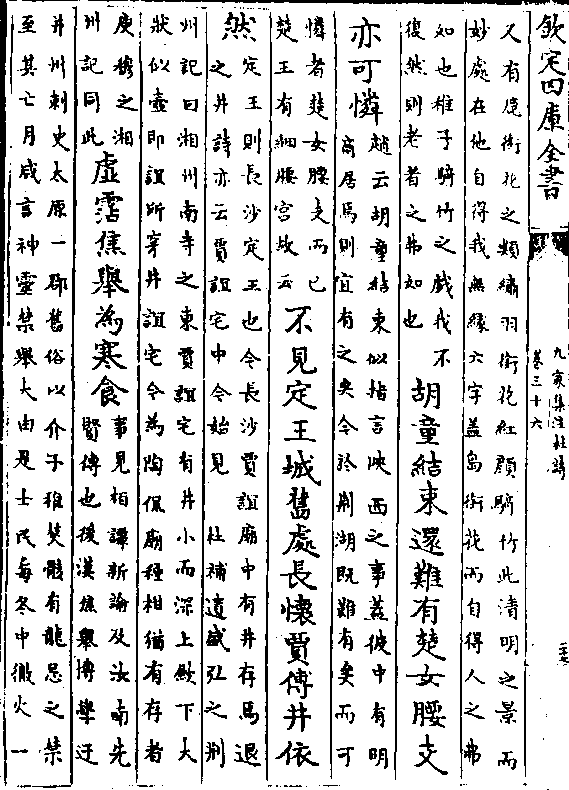 欽定四庫全書
九家集注杜詩
卷三十六
又有鹿銜花之類繡羽銜花紅顏騎竹此清明之景而
妙處在他自得我無緣六字蓋鳥銜花而自得人之弗
如也稚子騎竹之戲我不
復然則老者之弗如也
胡童結束還難有楚女腰支
亦可憐
趙云胡童結束似指言陝西之事蓋彼中有明
裔居焉則宜有之矣今於荆湖既難有矣而可
憐者楚女腰支而已
楚王有細腰宫故云
不見定王城舊處長懷賈傅井依
然
定王則長沙定王也今長沙賈誼廟中有井存焉退
之井詩亦云賈誼宅中今始見 杜補遺盛弘之荆
州記曰湘州南寺之東賈誼宅有井小而深上歛下大
狀似壺即誼所穿井誼宅今為陶侃廟種柑猶有存者
庾穆之湘
州記同此
虚霑焦舉為寒食
事見桓譚新論及汝南先
賢傳也後漢焦舉博學遷
并州刺史太原一郡舊俗以介子推焚骸有龍忌之禁
至其亡月咸言神靈禁舉火由是士民每冬中徹火一